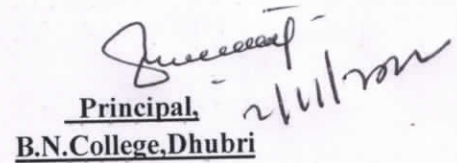 2/11/2022
Principal,
B.N.College,Dhubri